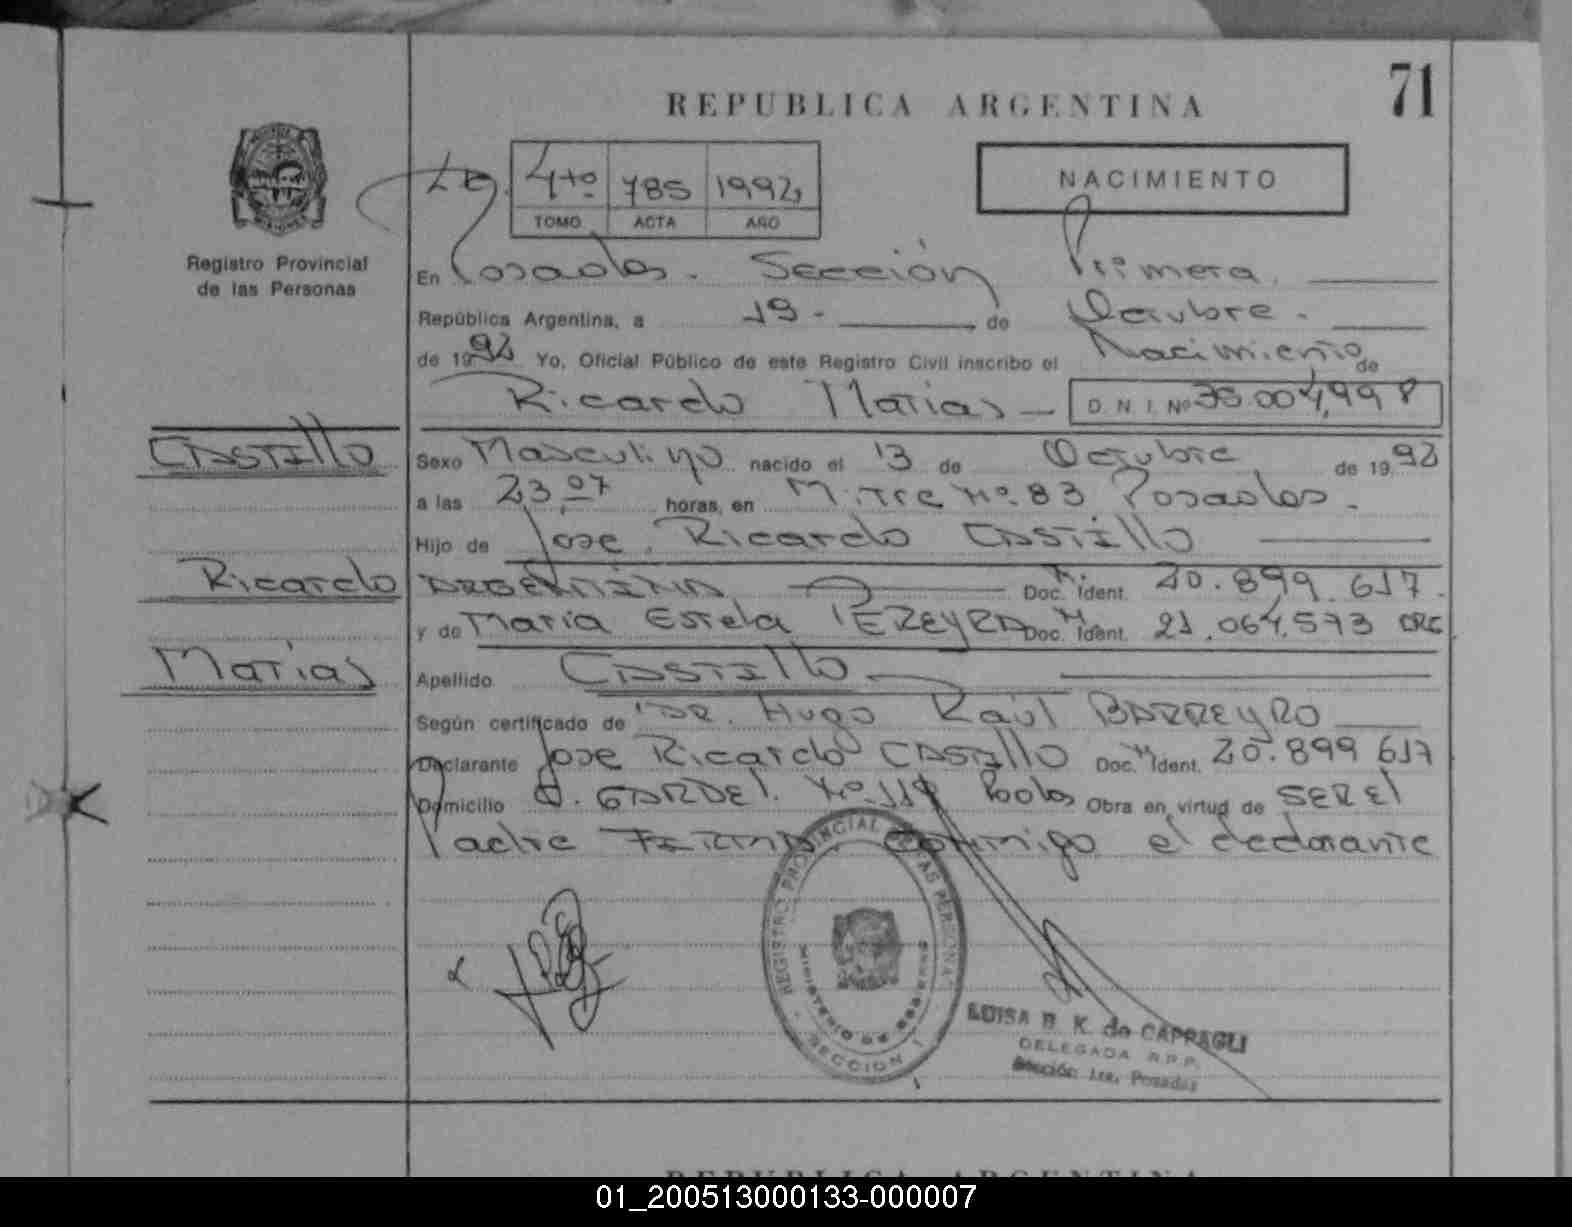 71
REPUBLICA ARGENTINA
4to 785 1992
TOMO ACTA AÑO
NACIMIENTO
Registro Provincial
de las Personas
En Posadas. Sección Primera.
República Argentina, a 19 - de Octubre.
de 1992 Yo, Oficial Público de este Registro Civil inscribo el Nacimiento de
Ricardo Matias D. N. I. Nº
CASTILLO
Ricardo
Matias
Sexo Masculino nacido el 13 de Octubre de 1992
a las 23 07 horas, en Mitre Nº 83 Posadas.
Hijo de Jose Ricardo CASTILLO
ARGENTINA Doc. Ident. 20.899.617.
y de Maria Estela PEREYRA Doc. Ident. 21.064.573 ARG
Apellido CASTILLO
Según certificado de DR. Hugo Raúl BARREYRO
Declarante Jose Ricardo CASTILLO Doc. Ident. 20.899 617
Domicilio GARDEL. Nº 119 Obra en virtud de SER El
Padre FIRMA Conmigo el declarante
REGISTRO PROVINCIAL DE LAS PERSONAS
MINISTERIO DE GOBIERNO
SECCION 1
LUISA B. K. de CAPPAGLI
DELEGADA R.P.P.
Sección 1ra. Posadas
REPUBLICA ARGENTINA
01_200513000133-000007